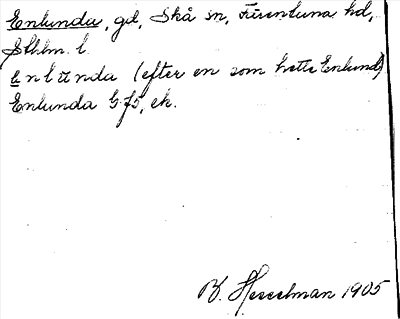 Enlunda, gd, Skå sn, Färentuna hd,
Sthlm. l.
enlunda (efter en som hette Enlund)
Enlunda Gf5, ek.
B. Hesselman 1905